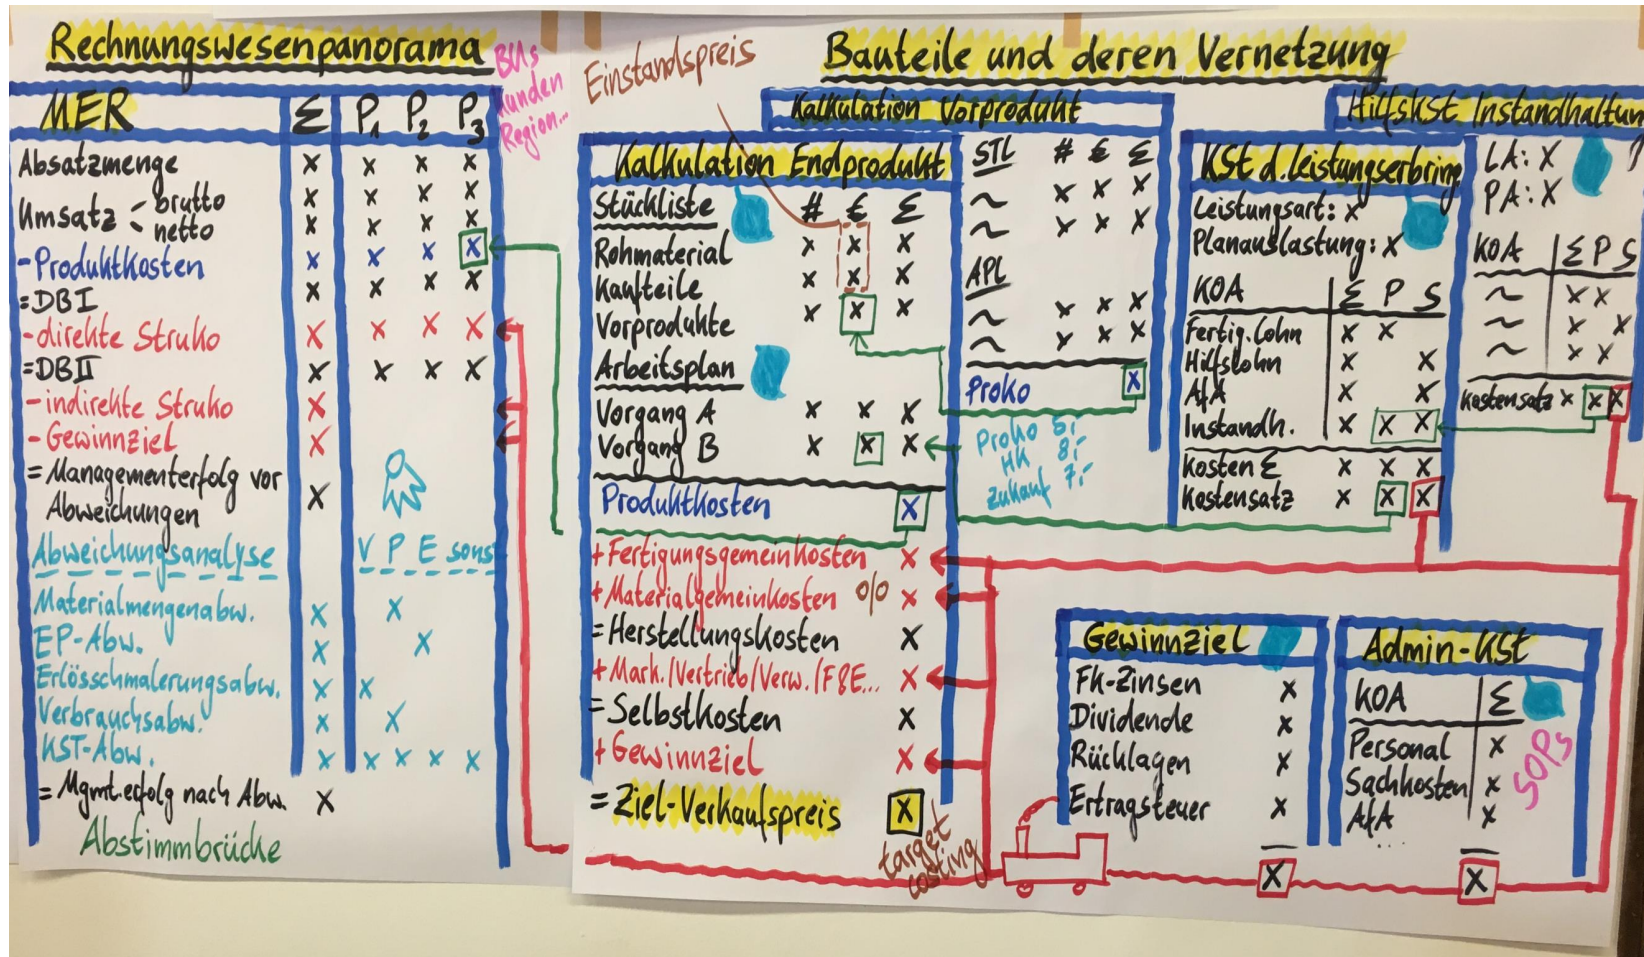 Rechnungswesenpanorama
BUs
Kunden
Region...
MER Σ P1 P2 P3
Absatzmenge x x x x
Umsatz < brutto x x x x
netto x x x x
- Produktkosten x x x x
= DB I x x x x
- direkte Struko x x x x
= DB II x x x x
- indirekte Struko x
- Gewinnziel x
= Managementerfolg vor
Abweichungen x
Abweichungsanalyse V P E sonst
Materialmengenabw. x x
EP-Abw. x x
Erlösschmalerungsabw. x x
Verbrauchsabw. x x
KST-Abw. x x x x x
= Mgmt.erfolg nach Abw. x
Abstimmbrücke
Bauteile und deren Vernetzung
Einstandspreis
Kalkulation Endprodukt
Stückliste # € Σ
Rohmaterial x x x
Kaufteile x x x
Vorprodukte x x x
Arbeitsplan
Vorgang A x x x
Vorgang B x x x
Produktkosten x
+ Fertigungsgemeinkosten x
+ Materialgemeinkosten o/o x
= Herstellungskosten x
+ Mark./Vertrieb/Verw./F&E... x
= Selbstkosten x
+ Gewinnziel x
= Ziel-Verkaufspreis x
target
costing
Kalkulation Vorprodukt
STL # € Σ
~ x x x
~ x x x
APL
~ x x x
~ x x x
Proko x
Proko 5,-
HK 8,-
Zukauf 7,-
KSt d. Leistungserbring
Leistungsart: x
Planauslastung: x
KOA Σ P S
Fertig.Lohn x x
Hilfslohn x x
AfA x x
Instandh. x x x
Kosten Σ x x x
Kostensatz x x x
HilfsKSt Instandhaltun
LA: x
PA: x
KOA Σ P S
~ x x
~ x x
~ x x
Kostensatz x x x
Gewinnziel
FK-Zinsen x
Dividende x
Rücklagen x
Ertragsteuer x
x
Admin-KSt
KOA Σ
Personal x
Sachkosten x
AfA x
...
x
SOPs